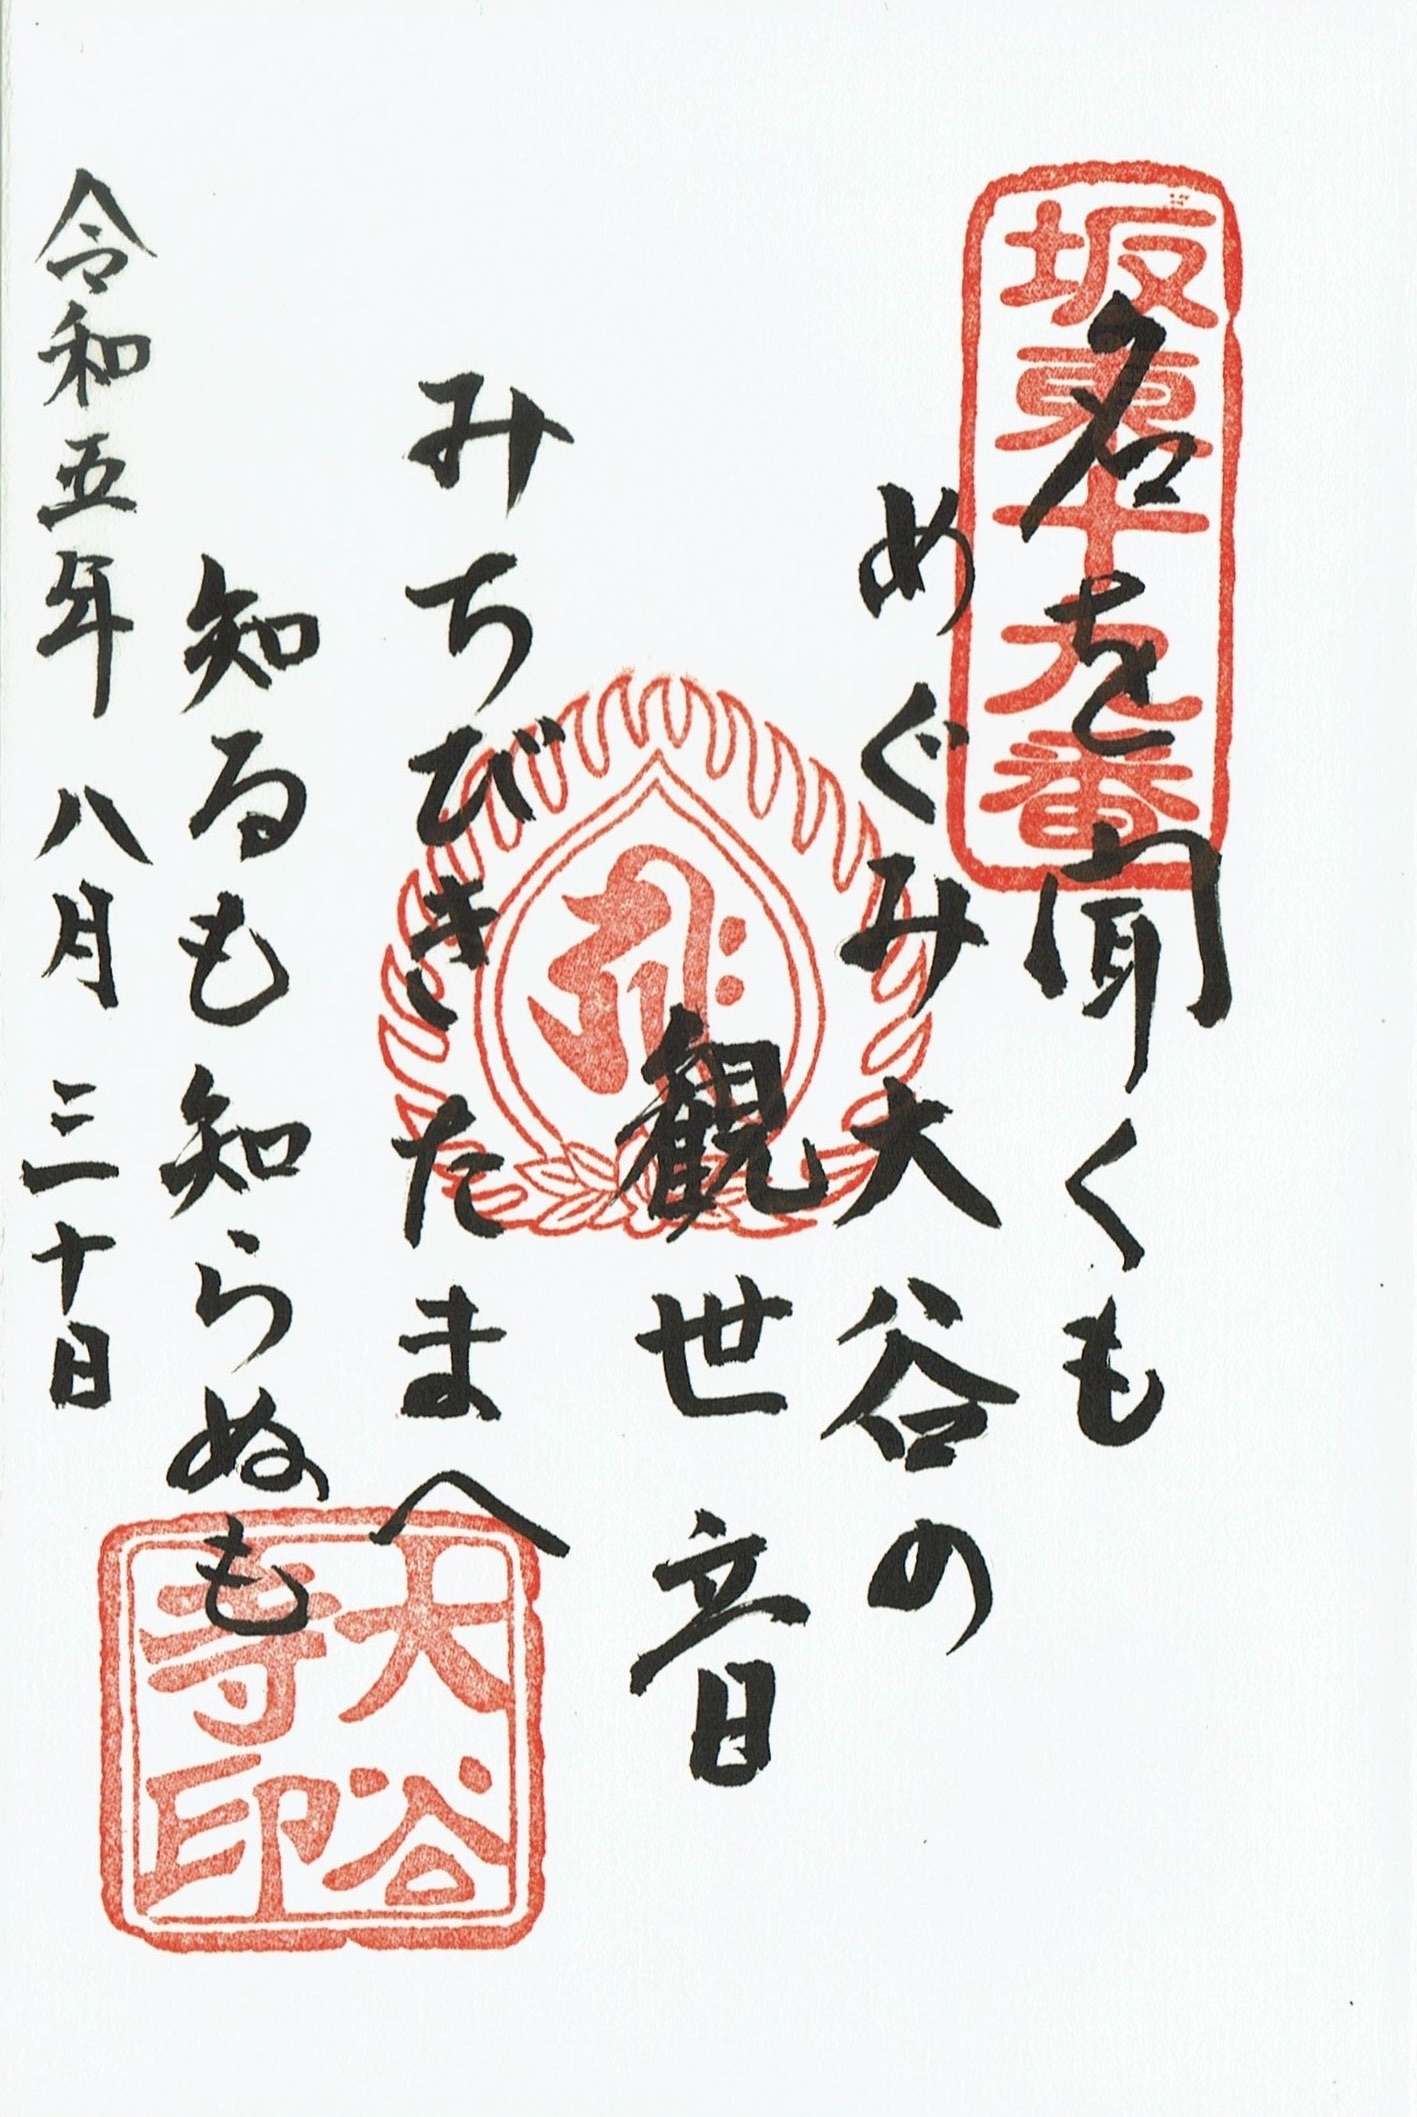 坂東十九番
名を聞くも
めぐみ大谷の
観世音
みちびきたまへ
知るも知らぬも
令和五年八月三十日
大谷
寺印